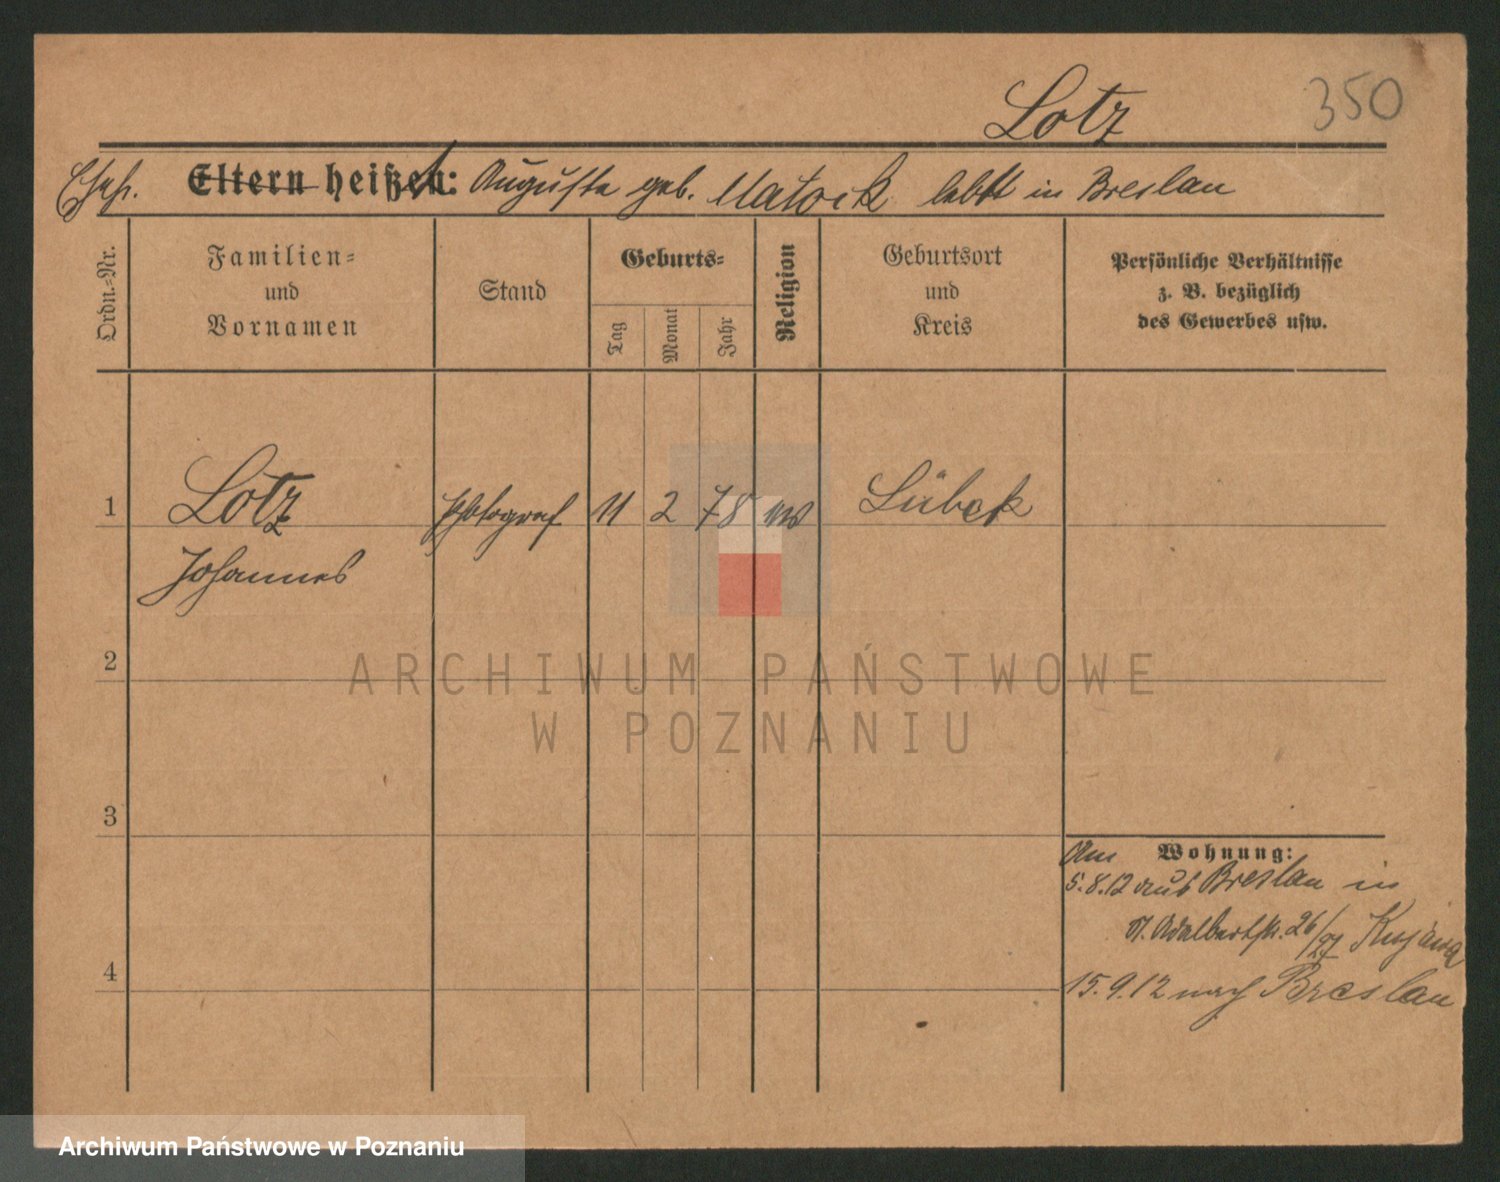 Lotz 350
Ehefr. Eltern heißt: Auguste geb. lebt in Breslau
Ordn.-Nr.
Familien-
und
Vornamen
Stand
Geburts-
Tag
Monat
Jahr
Religion
Geburtsort
und
Kreis
Persönliche Verhältnisse
z. B. bezüglich
des Gewerbes usw.
1 Lotz Photograf 11 2 78 Lübeck
Johannes
2
3
Wohnung:
Am
5.8.12 aus Breslau in
St. Adalbertstr. 26/27
4
15.9.12 nach Breslau
ARCHIWUM PAŃSTWOWE
W POZNANIU
Archiwum Państwowe w Poznaniu